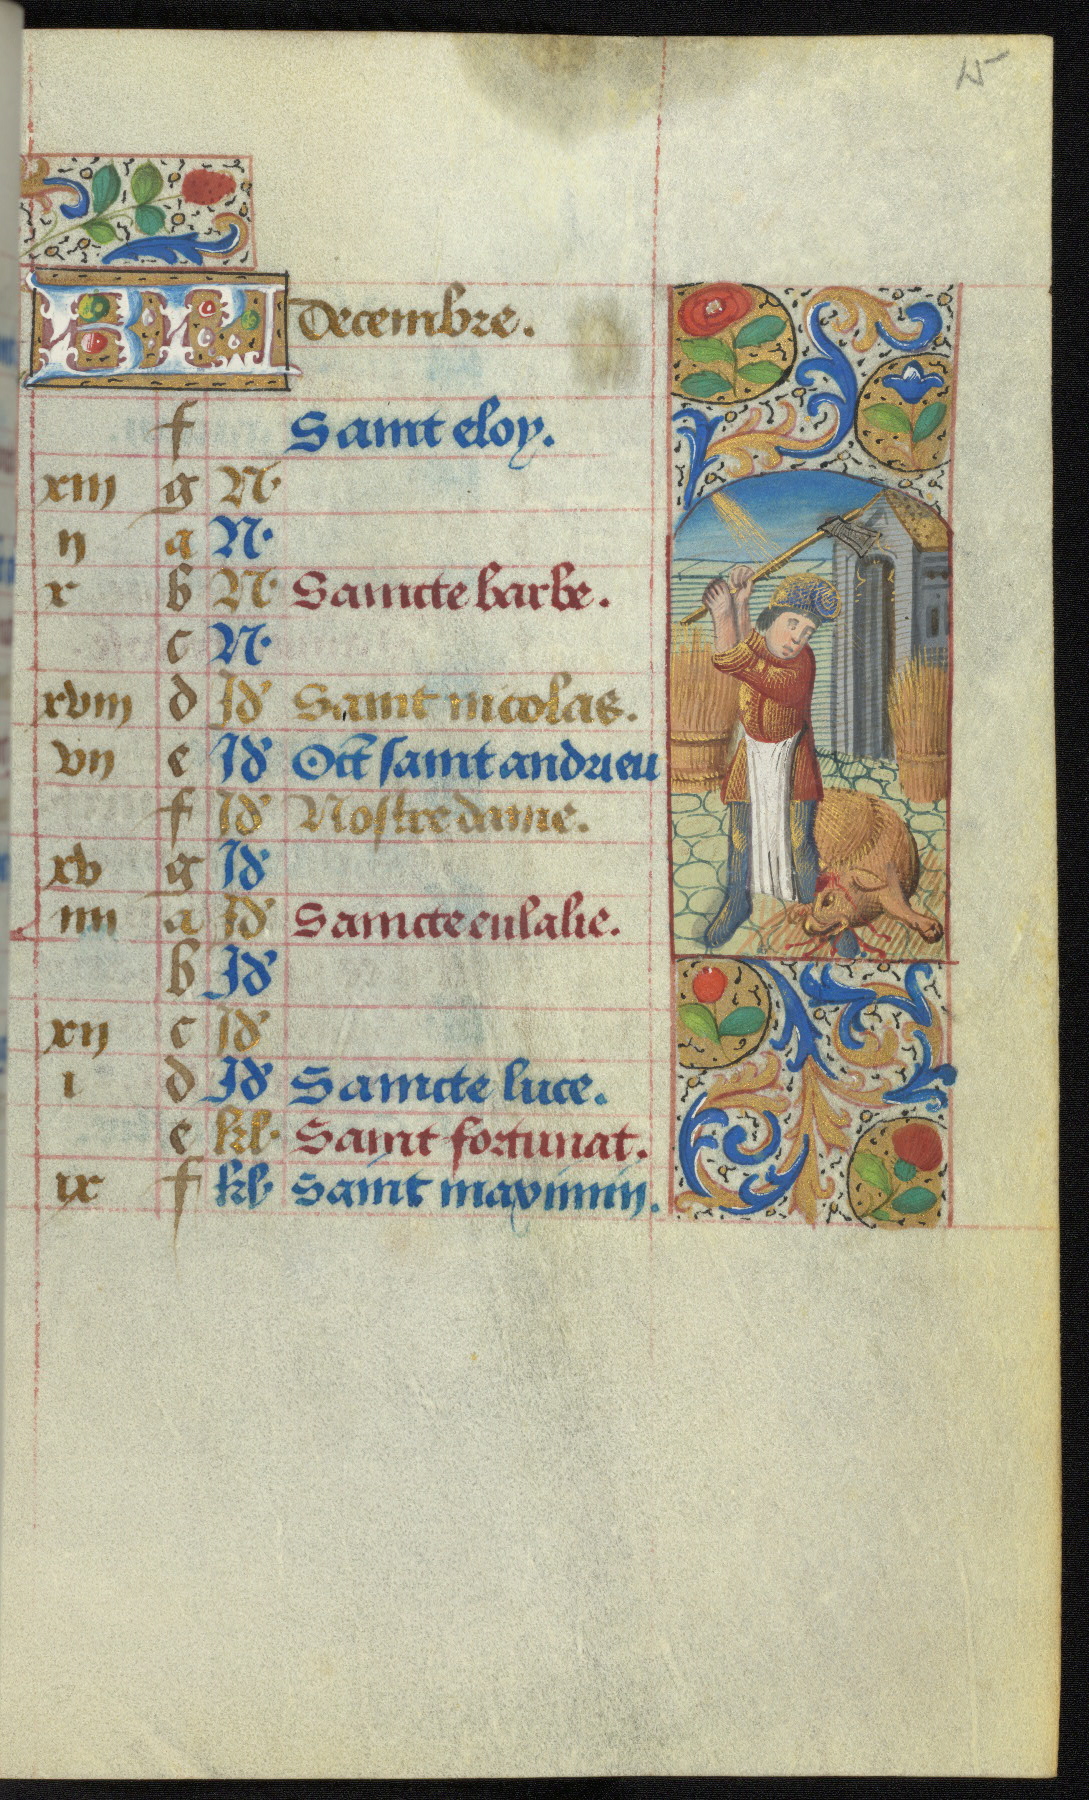 15
KL Decembre.
f Saint eloy.
xiii g N.
ii a N.
x b N. Saincte barbe.
c N.
xviii d Id Saint nicolas.
vii e Id Oct saint andrieu
f Id Nostre dame.
xv g Id
iiii a Id Saincte eulalie.
b Id
xii c Id
i d Id Saincte luce.
e kl. Saint fortunat.
ix f kl. Saint maximin.